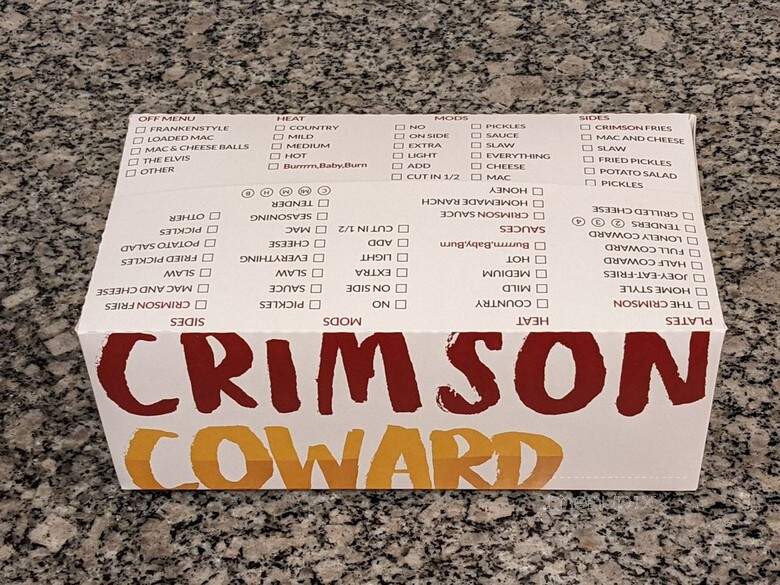 OFF MENU
FRANKENSTYLE
LOADED MAC
MAC & CHEESE BALLS
THE ELVIS
OTHER
HEAT
COUNTRY
MILD
MEDIUM
HOT
Burrrrn,Baby,Burn
MODS
NO
ON SIDE
EXTRA
LIGHT
ADD
CUT IN 1/2
PICKLES
SAUCE
SLAW
EVERYTHING
CHEESE
MAC
SIDES
CRIMSON FRIES
MAC AND CHEESE
SLAW
FRIED PICKLES
POTATO SALAD
PICKLES
PLATES
THE CRIMSON
HOME STYLE
JOEY-EAT-FRIES
HALF COWARD
FULL COWARD
LONELY COWARD
TENDERS 2 3 4
GRILLED CHEESE
HEAT
COUNTRY
MILD
MEDIUM
HOT
Burrrrn,Baby,Burn
SAUCES
CRIMSON SAUCE
HOMEMADE RANCH
HONEY
MODS
NO
ON SIDE
EXTRA
LIGHT
ADD
CUT IN 1/2
PICKLES
SAUCE
SLAW
EVERYTHING
CHEESE
MAC
SEASONING
TENDER
C M M H B
SIDES
CRIMSON FRIES
MAC AND CHEESE
SLAW
FRIED PICKLES
POTATO SALAD
PICKLES
OTHER
CRIMSON
COWARD